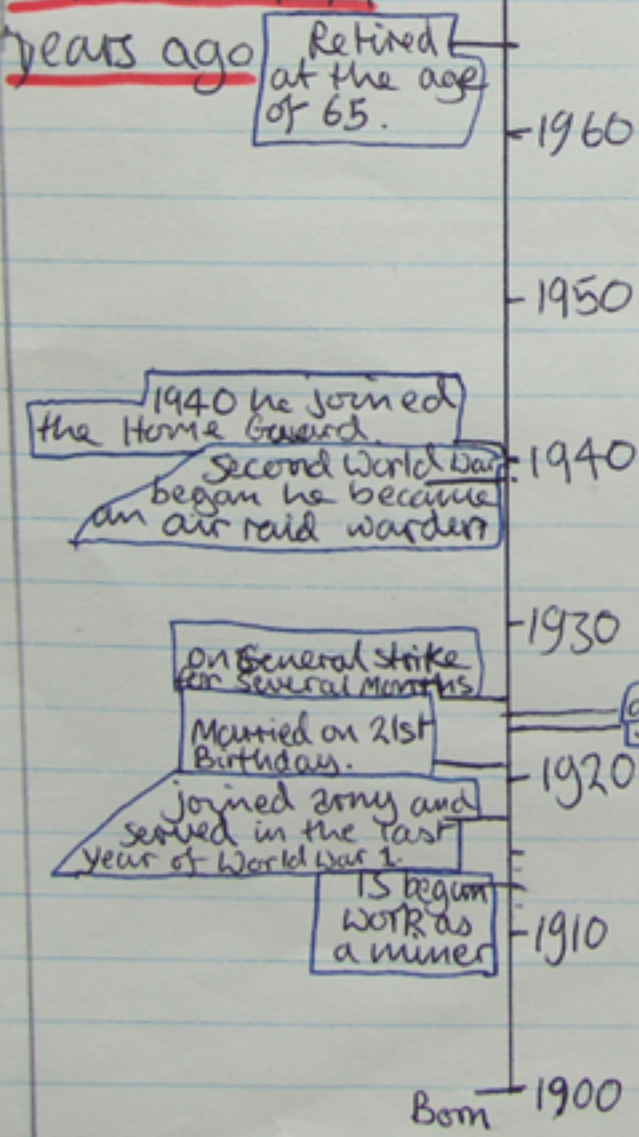 years ago
Retired
at the age
of 65.
1960
1950
1940 he joined
the Home Guard.
1940
Second World War
began he became
an air raid warden
1930
on General strike
for several Months
Married on 21st
Birthday.
1920
joined army and
served in the last
year of World War 1.
15 began
work as
a miner
1910
1900
Born